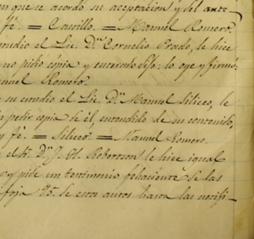 en que se acordó su aceptacion y del auto
fé. = Castillo. = Manuel Romero.
studio el Lic. Dn. Cornelio Prado, le hice
no pidio copia y enterado dijo: lo oye y firmó.
anuel Romero
su estudio el Lic. Dn. Manuel Siliceo, le
pedir copia de él, entendido de su contenido,
y fé. = Siliceo = Manuel Romero.
el Sr. Dn. J. H. Robertson le hice igual
y pide un testimonio fehaciente de las
foja 75. de estos autos hacen las notifi-